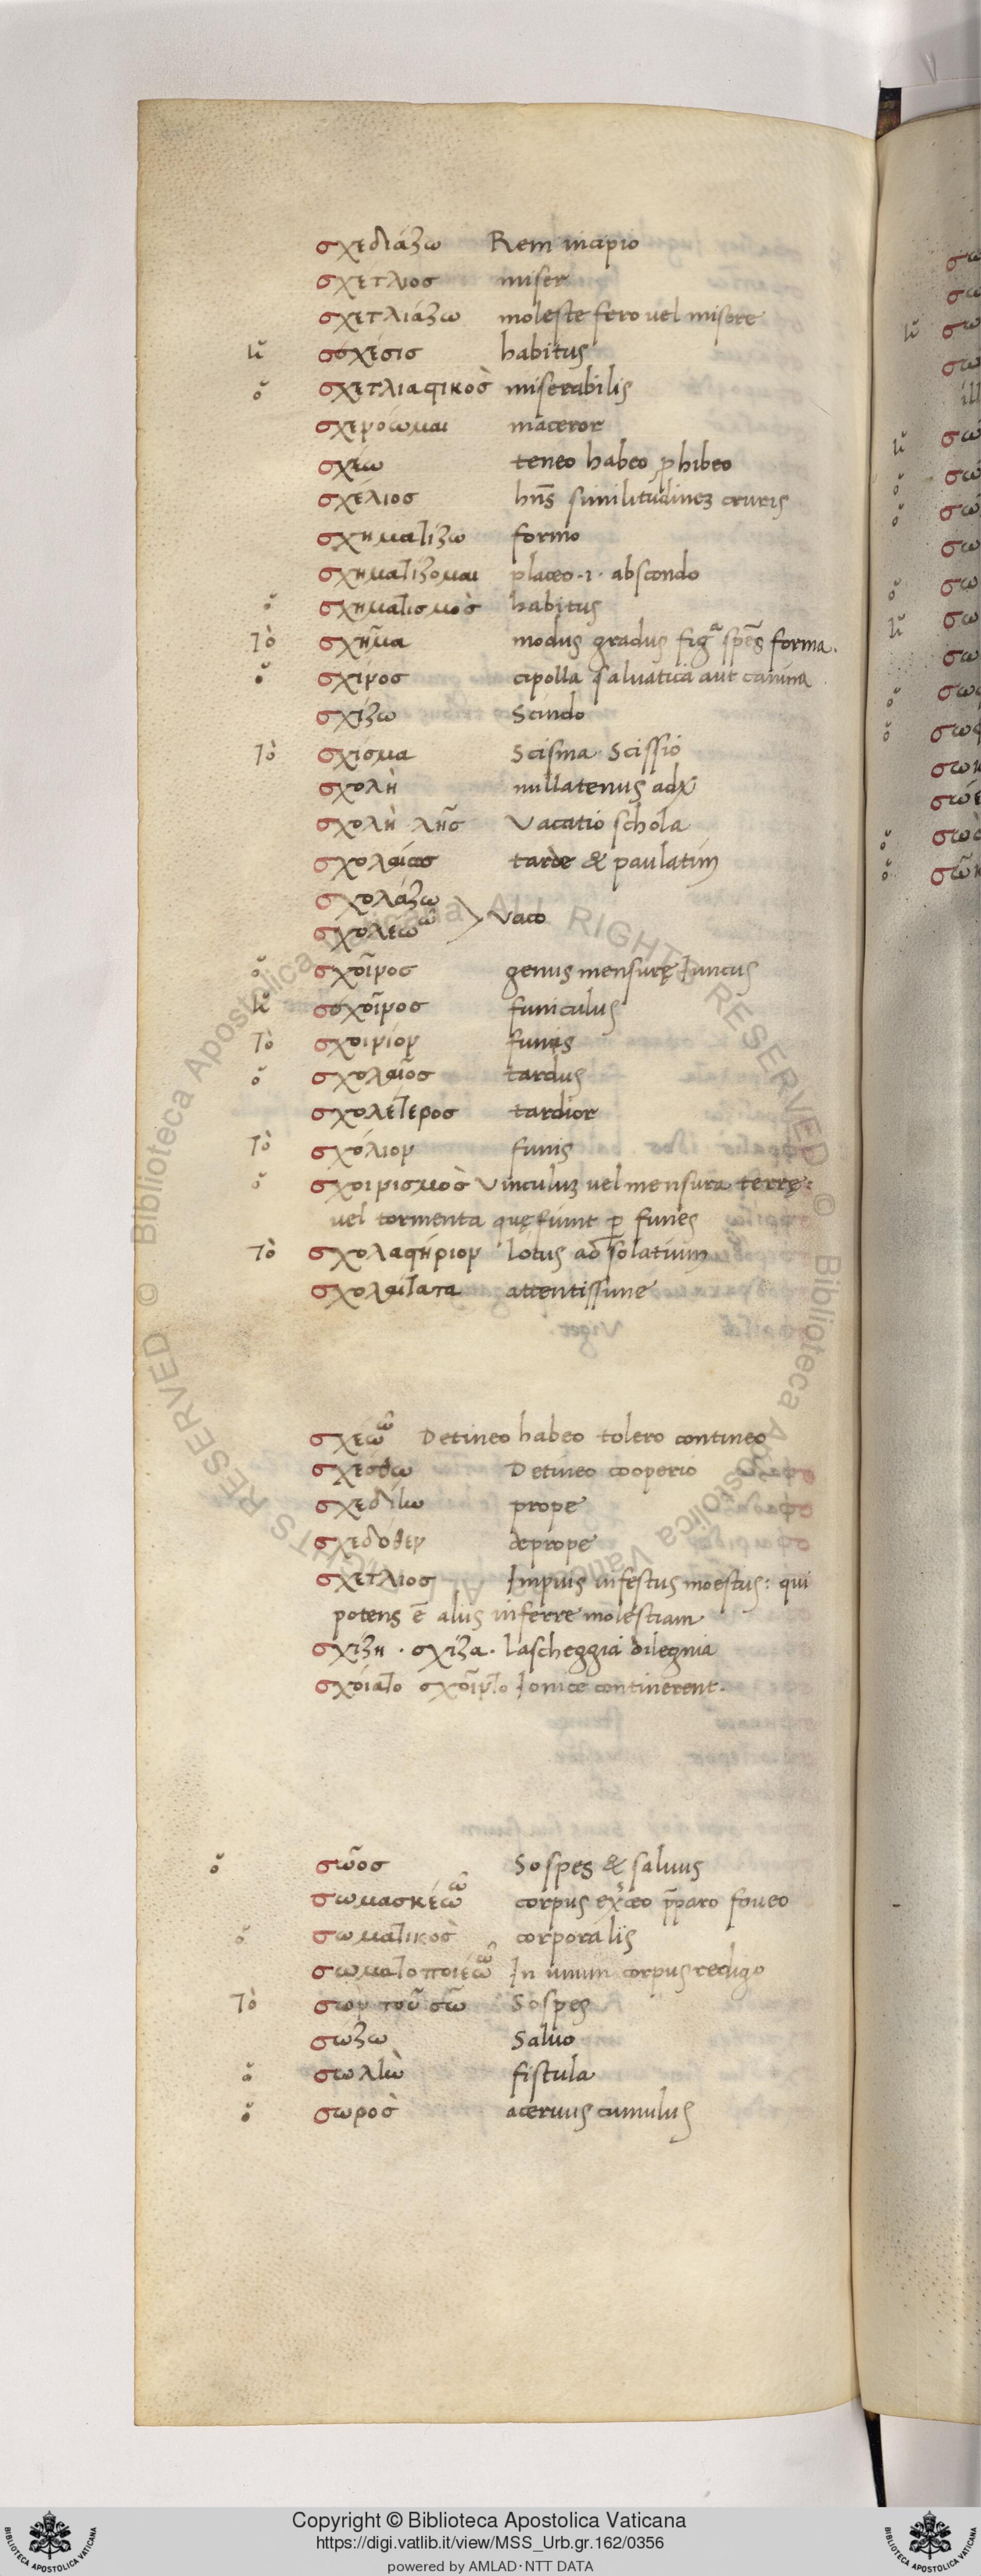 σχεδιάζω Rem incipio
σχέτλιος miser
σχετλιάζω moleste fero vel misere
σχέσις habitus
ὁ σχετλιαστικὸς miserabilis
maceror
σχέω teneo habeo prohibeo
σχέλιος hn̄s similitudinez cruris
σχηματίζω formo
σχηματίζομαι placeo .i. abscondo
ὁ σχηματισμὸς habitus
τὸ σχῆμα modus gradus figa sp̄es forma.
ὁ σχῖνος cipolla salvatica aut canina
σχίζω Scindo
τὸ σχίσμα Scisma Scissio
σχολὴ nullatenus adx
σχολὴ λῆς Vacatio schola
tarde & paulatim
σχολάζω
σχολέω ῶ vaco
ὁ σχοῖνος genus mensurę Juncus
σχοῖνος funiculus
τὸ σχοινίον funis
ὁ σχολαῖος tardus
σχολέτερος tardior
τὸ σχόλιον funis
ὁ σχοινισμὸς Vinculuz vel mensura terrę:
vel tormenta quę fiunt p funes
τὸ σχολαστήριον lotus ad solatium
σχολαίτατα attentissime
σχέω ῶ Detineo habeo tolero contineo
σχέσθω Detineo cooperio
prope
σχεδόθεν deprope
σχέτλιος Impius infestus moestus: qui
potens ē aliis inferre molestiam
σχίζη . σχίζα . la scheggia di legnia
σχοίατο σχοῖντο Jonice continerent.
ὁ σῶος Sospes & salvus
σωμασκέω ῶ corpus exceo p̄paro foveo
ὁ σωματικὸς corporalis
σωματοποιέω ῶ In unum corpus redigo
τὸ σῶν τοῦ σῶ Sospes
σώζω Salvo
fistula
ὁ σωρὸς acervus cumulus
Copyright © Biblioteca Apostolica Vaticana
https://digi.vatlib.it/view/MSS_Urb.gr.162/0356
powered by AMLAD·NTT DATA